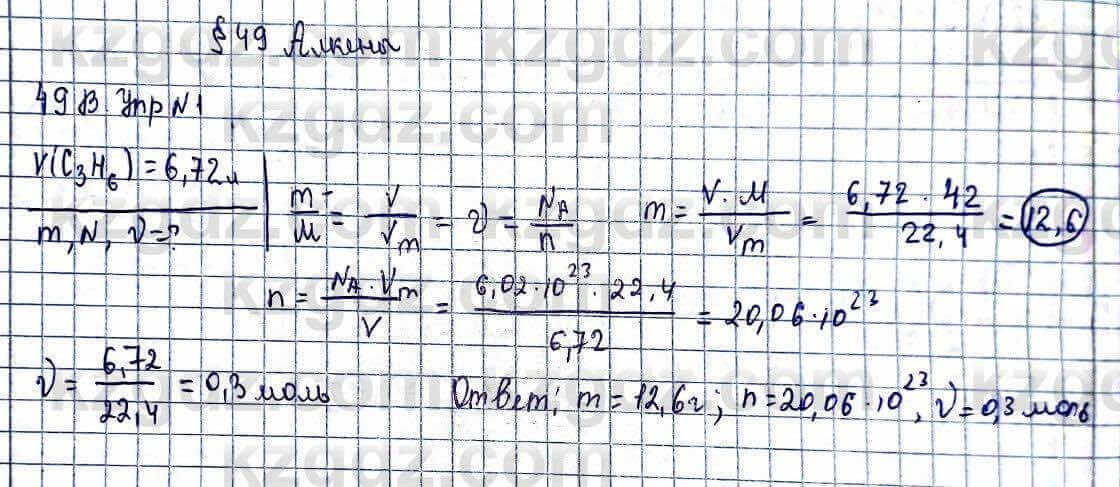 § 49 Алкены
49 В Упр N 1
V(C₃H₆) = 6,72 л
m, N, ν = ?
m/M = V/Vm = ν = NA/n
m = V · M / Vm = 6,72 · 42 / 22,4 = 12,6
n = NA · Vm / V = 6,02 · 10²³ · 22,4 / 6,72 = 20,06 · 10²³
ν = 6,72 / 22,4 = 0,3 моль
Ответ: m = 12,6 г; n = 20,06 · 10²³, ν = 0,3 моль
kzgdz.com